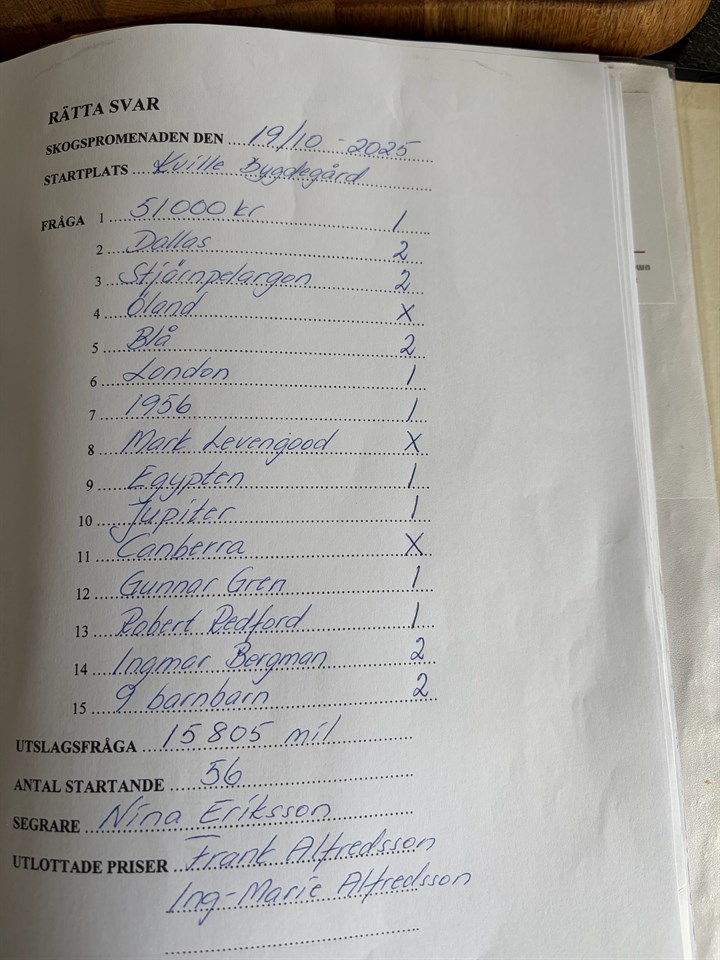 RÄTTA SVAR
SKOGSPROMENADEN DEN 19/10 - 2025
STARTPLATS Kville Bygdegård
FRÅGA 1 51000 kr 1
2 Dallas 2
3 Stjärnpelargon 2
4 Öland X
5 Blå 2
6 London 1
7 1956 1
8 Mark Levengood X
9 Egypten 1
10 Jupiter 1
11 Canberra X
12 Gunnar Gren 1
13 Robert Redford 1
14 Ingmar Bergman 2
15 9 barnbarn 2
UTSLAGSFRÅGA 15805 mil
ANTAL STARTANDE 56
SEGRARE Nina Eriksson
UTLOTTADE PRISER Frank Alfredsson
Ing-Marie Alfredsson